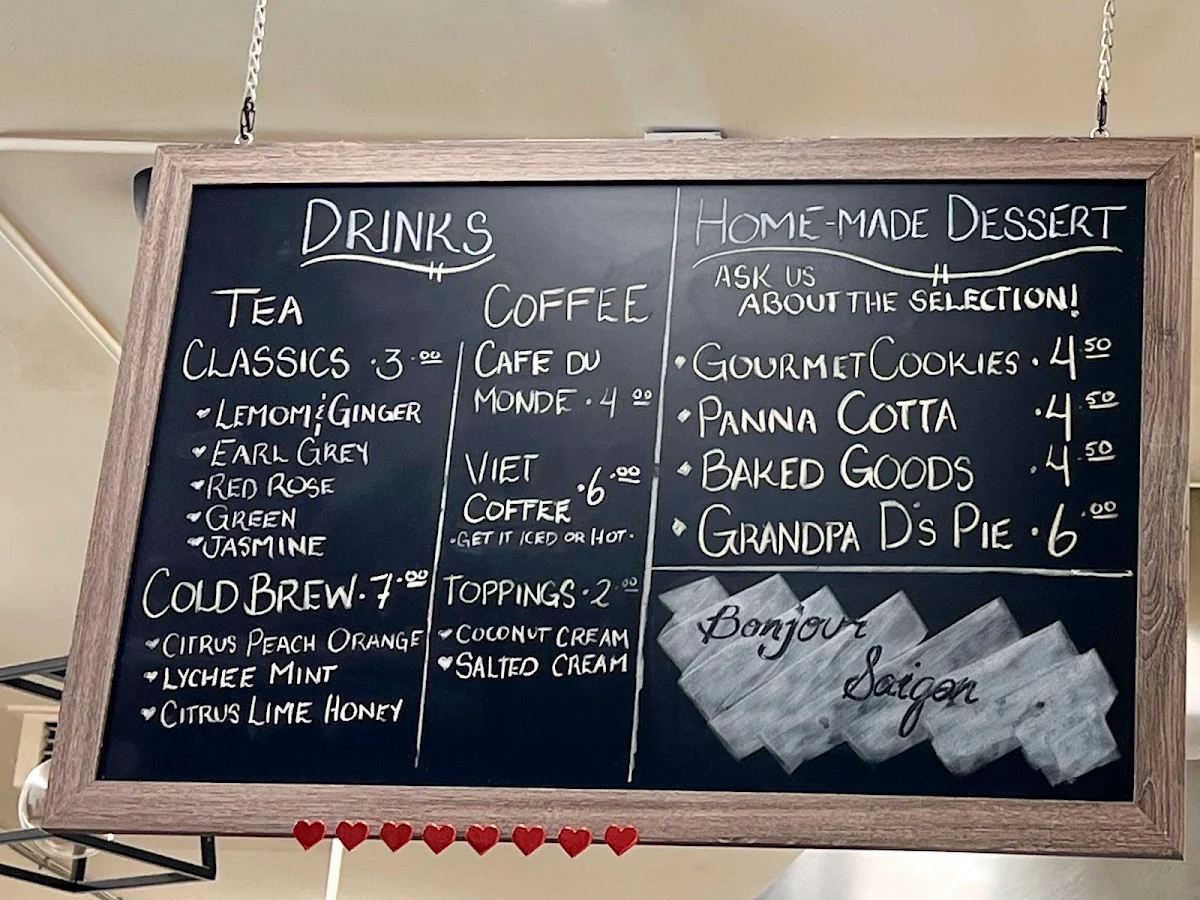 DRINKS
TEA
CLASSICS · 3.00
LEMOM & GINGER
EARL GREY
RED ROSE
GREEN
JASMINE
COLD BREW · 7.00
CITRUS PEACH ORANGE
LYCHEE MINT
CITRUS LIME HONEY
COFFEE
CAFE DU
MONDE · 4.00
VIET
COFFEE · 6.00
· GET IT ICED OR HOT ·
TOPPINGS · 2.00
COCONUT CREAM
SALTED CREAM
HOME-MADE DESSERT
ASK US
ABOUT THE SELECTION!
GOURMET COOKIES · 4.50
PANNA COTTA · 4.50
BAKED GOODS · 4.50
GRANDPA D'S PIE · 6.00
Bonjour
Saigon